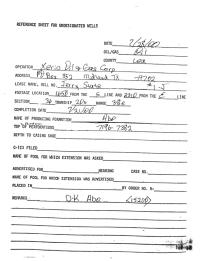 REFERENCE SHEET FOR UNDESIGNATED WELLS
DATE
OIL/GAS Oil
COUNTY Lea
OPERATOR Oil & Gas Corp
ADDRESS PO Box 352 Midland TX 79702
LEASE NAME, WELL NO. State #1-J
FOOTAGE LOCATION 1650 FROM THE S LINE AND 2310 FROM THE E LINE
SECTION 34 TOWNSHIP RANGE 38E
COMPLETION DATE
NAME OF PRODUCING FORMATION Abo
TOP OF PERFORATIONS 7196-7382
DEPTH TO CASING SHOE
C-123 FILED
NAME OF POOL FOR WHICH EXTENSION WAS ASKED
ADVERTISED FOR HEARING CASE NO.
NAME OF POOL FOR WHICH EXTENSION WAS ADVERTISED
PLACED IN BY ORDER NO. R-
REMARKS D-K Abo (15200)